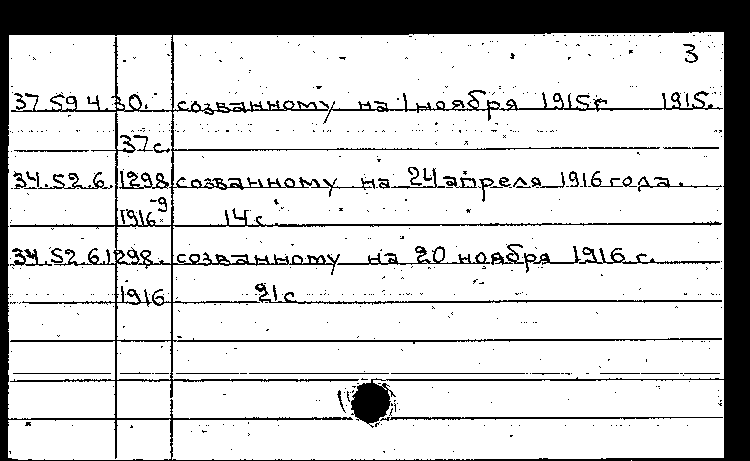 3
37.59 4.30. созванному на 1 ноября 1915 г. 1915.
37 с.
34.52.6. 1298 созванному на 24 апреля 1916 года.
1916-9 14 с.
34.52.6.1298. созванному на 20 ноября 1916 г.
1916 21 с